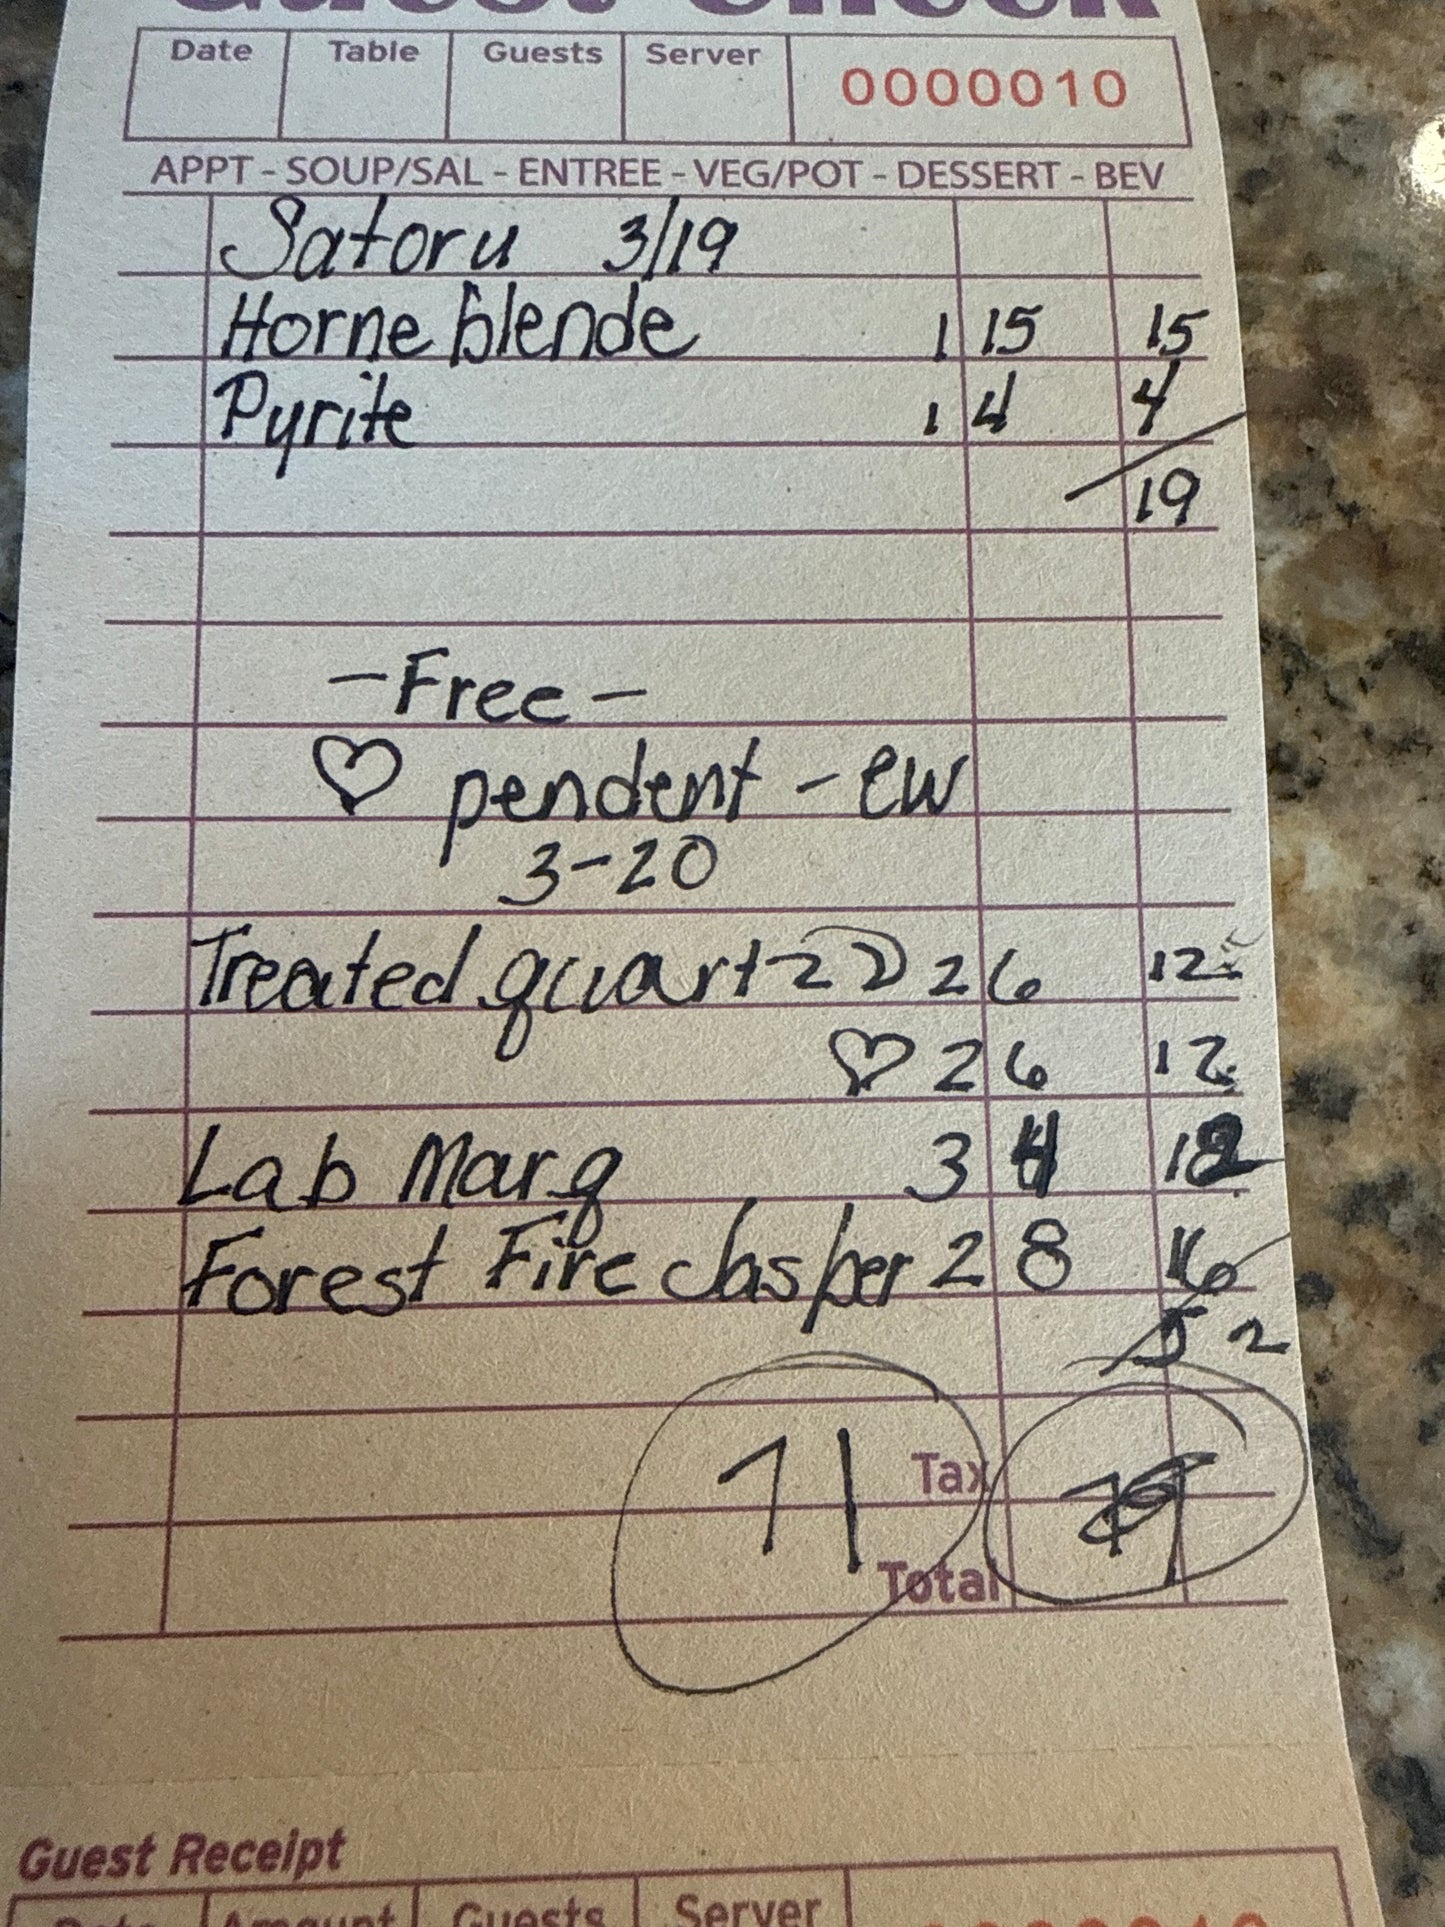 Guest Check
Date Table Guests Server 0000010
APPT - SOUP/SAL - ENTREE - VEG/POT - DESSERT - BEV
Satoru 3/19
Horne blende 1 15 15
Pyrite 1 4 4
19
- Free -
♡ pendent - ew
3-20
Treated quartz 2 6 12
♡ 2 6 12
Lab Marq 3 4 12
Forest Fire Jasper 2 8 16
52
71 Tax
Total
Guest Receipt
Date Amount Guests Server